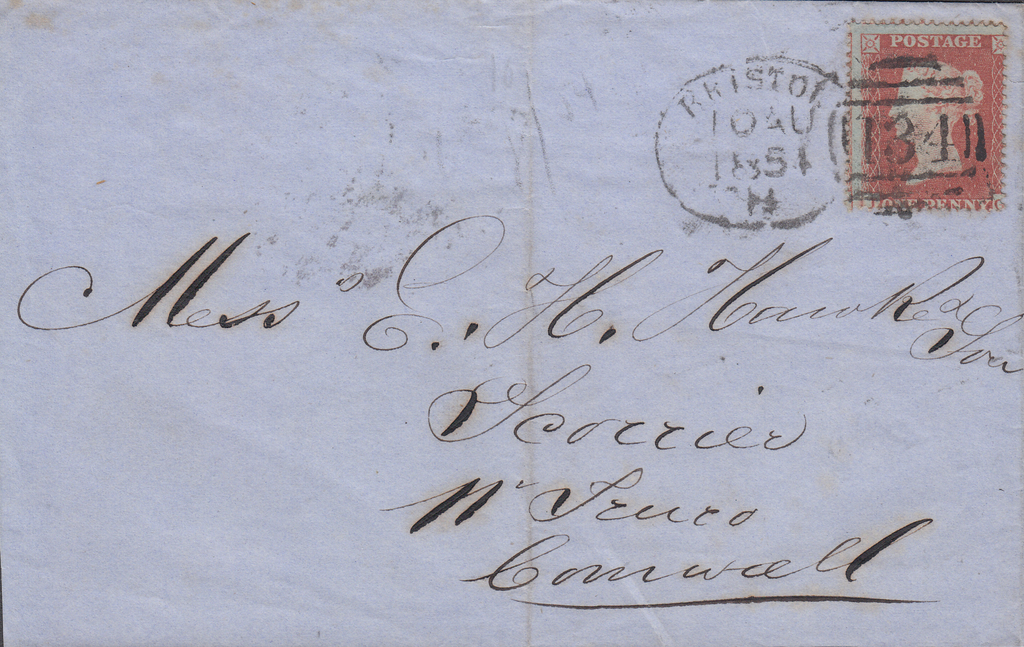 POSTAGE
BRISTOL
10 AU
1854
134
ONE PENNY
Mess rs E. H. Hawke & Son
Scorrier
Nr Truro
Cornwall